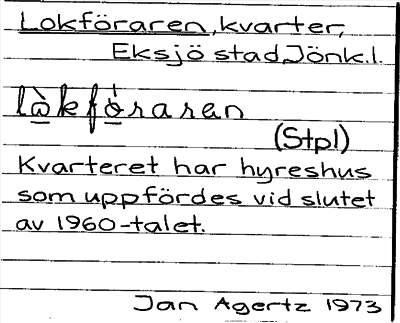 Lokföraren, kvarter,
Eksjö stad, Jönk.l.
lò̱kfó̱raran
(Stpl)
Kvarteret har hyreshus
som uppfördes vid slutet
av 1960-talet.
Jan Agertz 1973